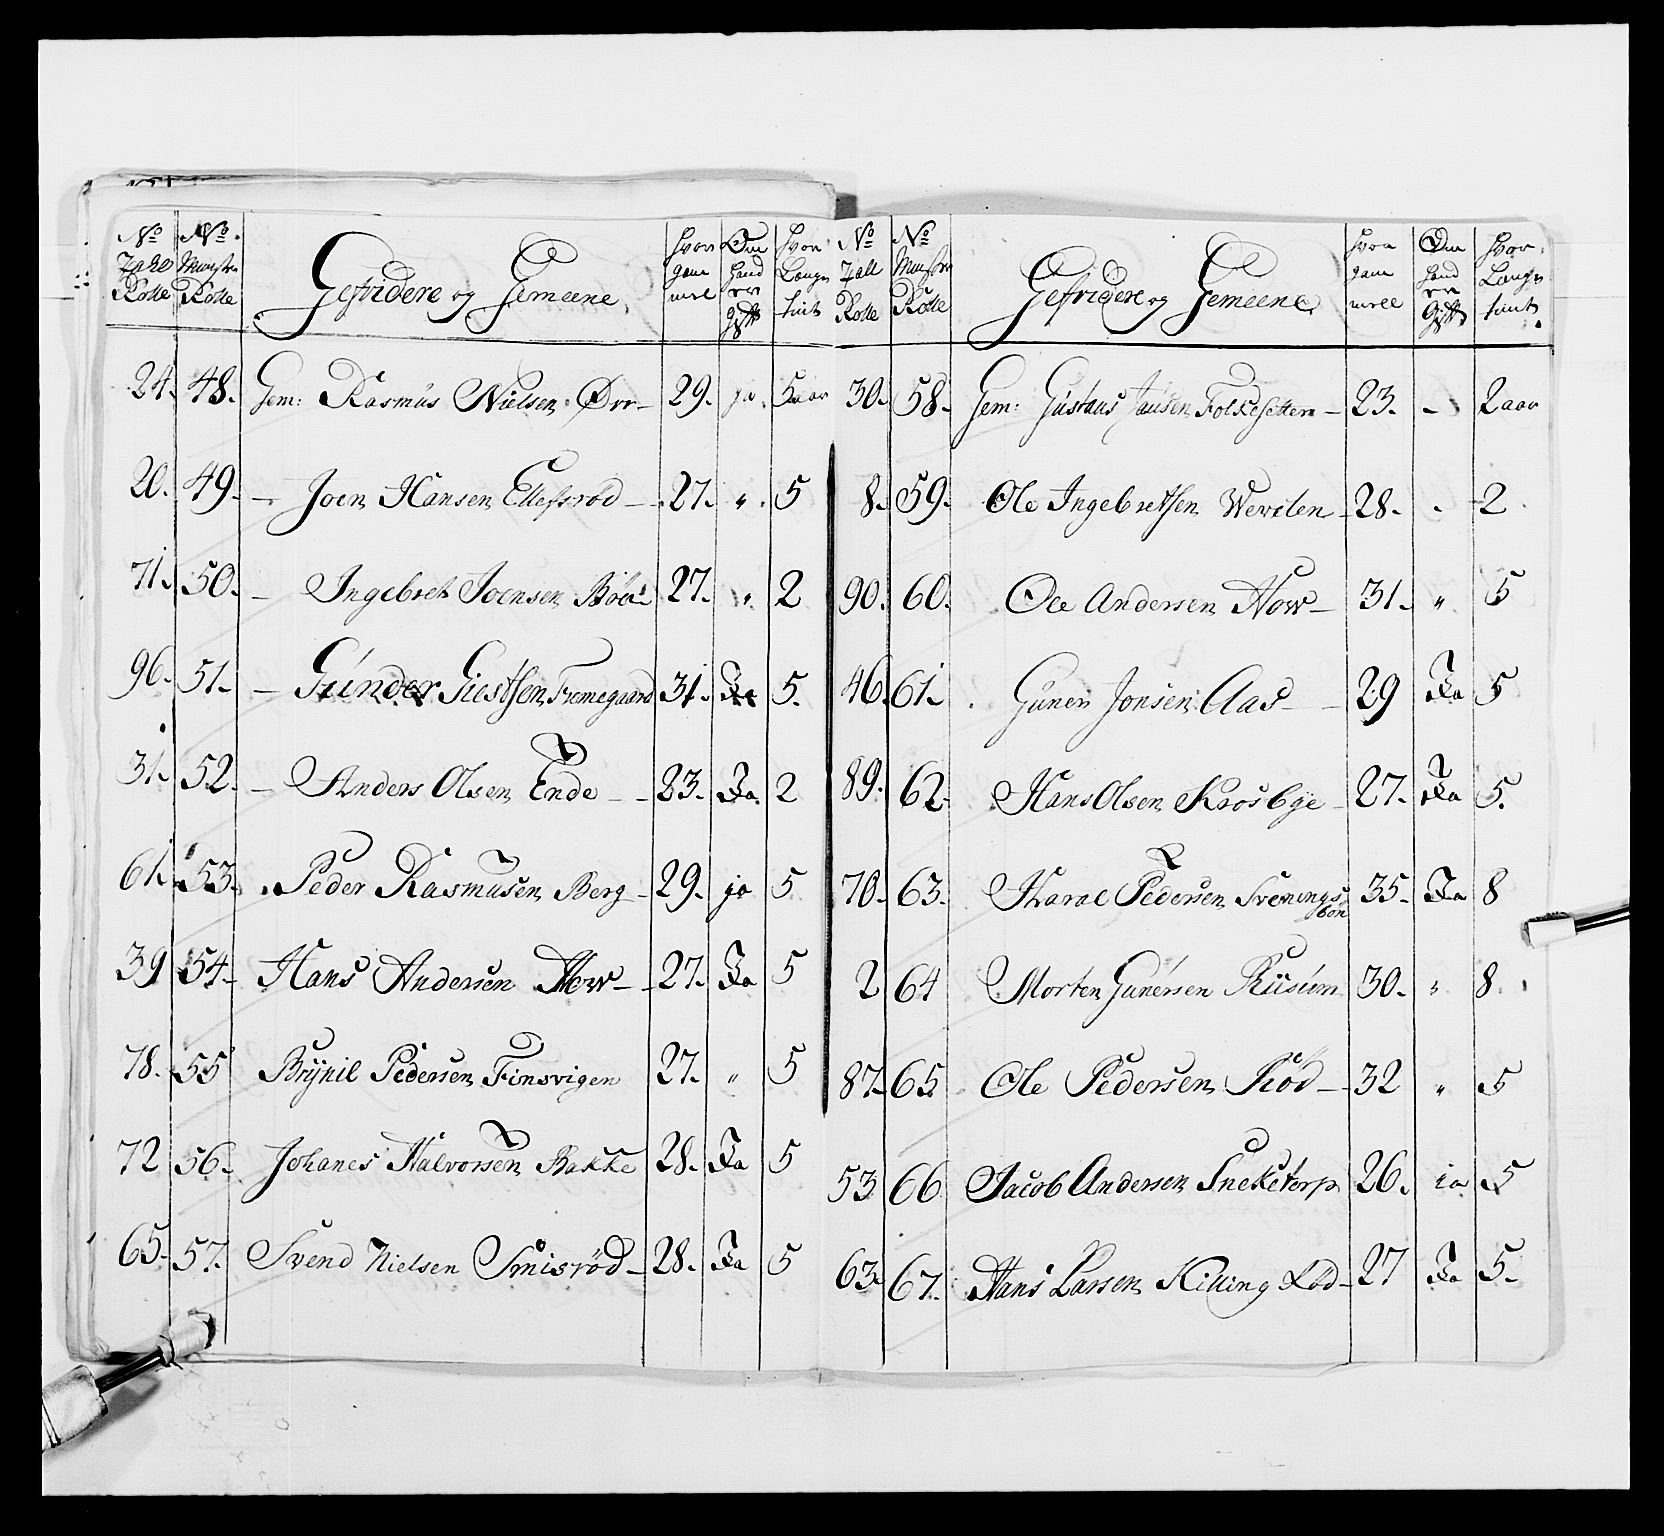 No Zahl Rolle | No Munster Rolle | Gefridere og Gemeene | hvor gammel | Om hand er Gift | hvor Længe tient
24. 48. Gem: Rasmus Nielsen Örr 29. ja. 5 aar
20. 49. – Joen Hansen Ellefsröd 27. " 5
71. 50. – Ingebret Joensen 27. " 2
96. 51. – Gunder Giertsen Fremegaard 31. Ja 5.
31. 52. – Anders Olsen Ende 23. Ja 2
61. 53. Peder Rasmusen Berg 29. ja 5
39 54 Hans Andersen How 27. Ja 5
78. 55 Brynil Pedersen Finsvigen 27. " 5
72 56. Johanes Halvorsen Bakke 28. Ja 5
65. 57. Svend Nielsen Smisröd 28. Ja 5
No Zall Rolle | No Munster Rolle | Gefridere og Gemeene | hvor gammell | Om hand er Gift | hvor Længe tient
30. 58. Gem: Gustaus Jansen Folkesetten 23. – 2 aar
8. 59. Ole Ingebretsen Wevelen 28. 2
90. 60. Ole Andersen How 31. " 5
46. 61. Guner Jonsen Aas 29 Ja 5
89. 62. Hans Olsen Krosbye 27. Ja 5.
70. 63. Haral Pedersen Sveningsbön 35. Ja 8
2 64 Morten Gunersen Riisum 30. " 8.
87. 65. Ole Pedersen Röd 32 " 5
53 66 Jacob Andersen Sneketorp 26. ja 5
63. 67. Hans Larsen Killing Röd 27 Ja 5.